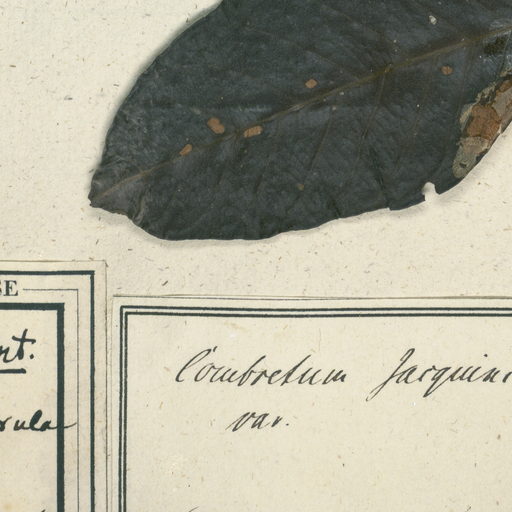 SE
nt.
rula
Combretum Jacquini
var.